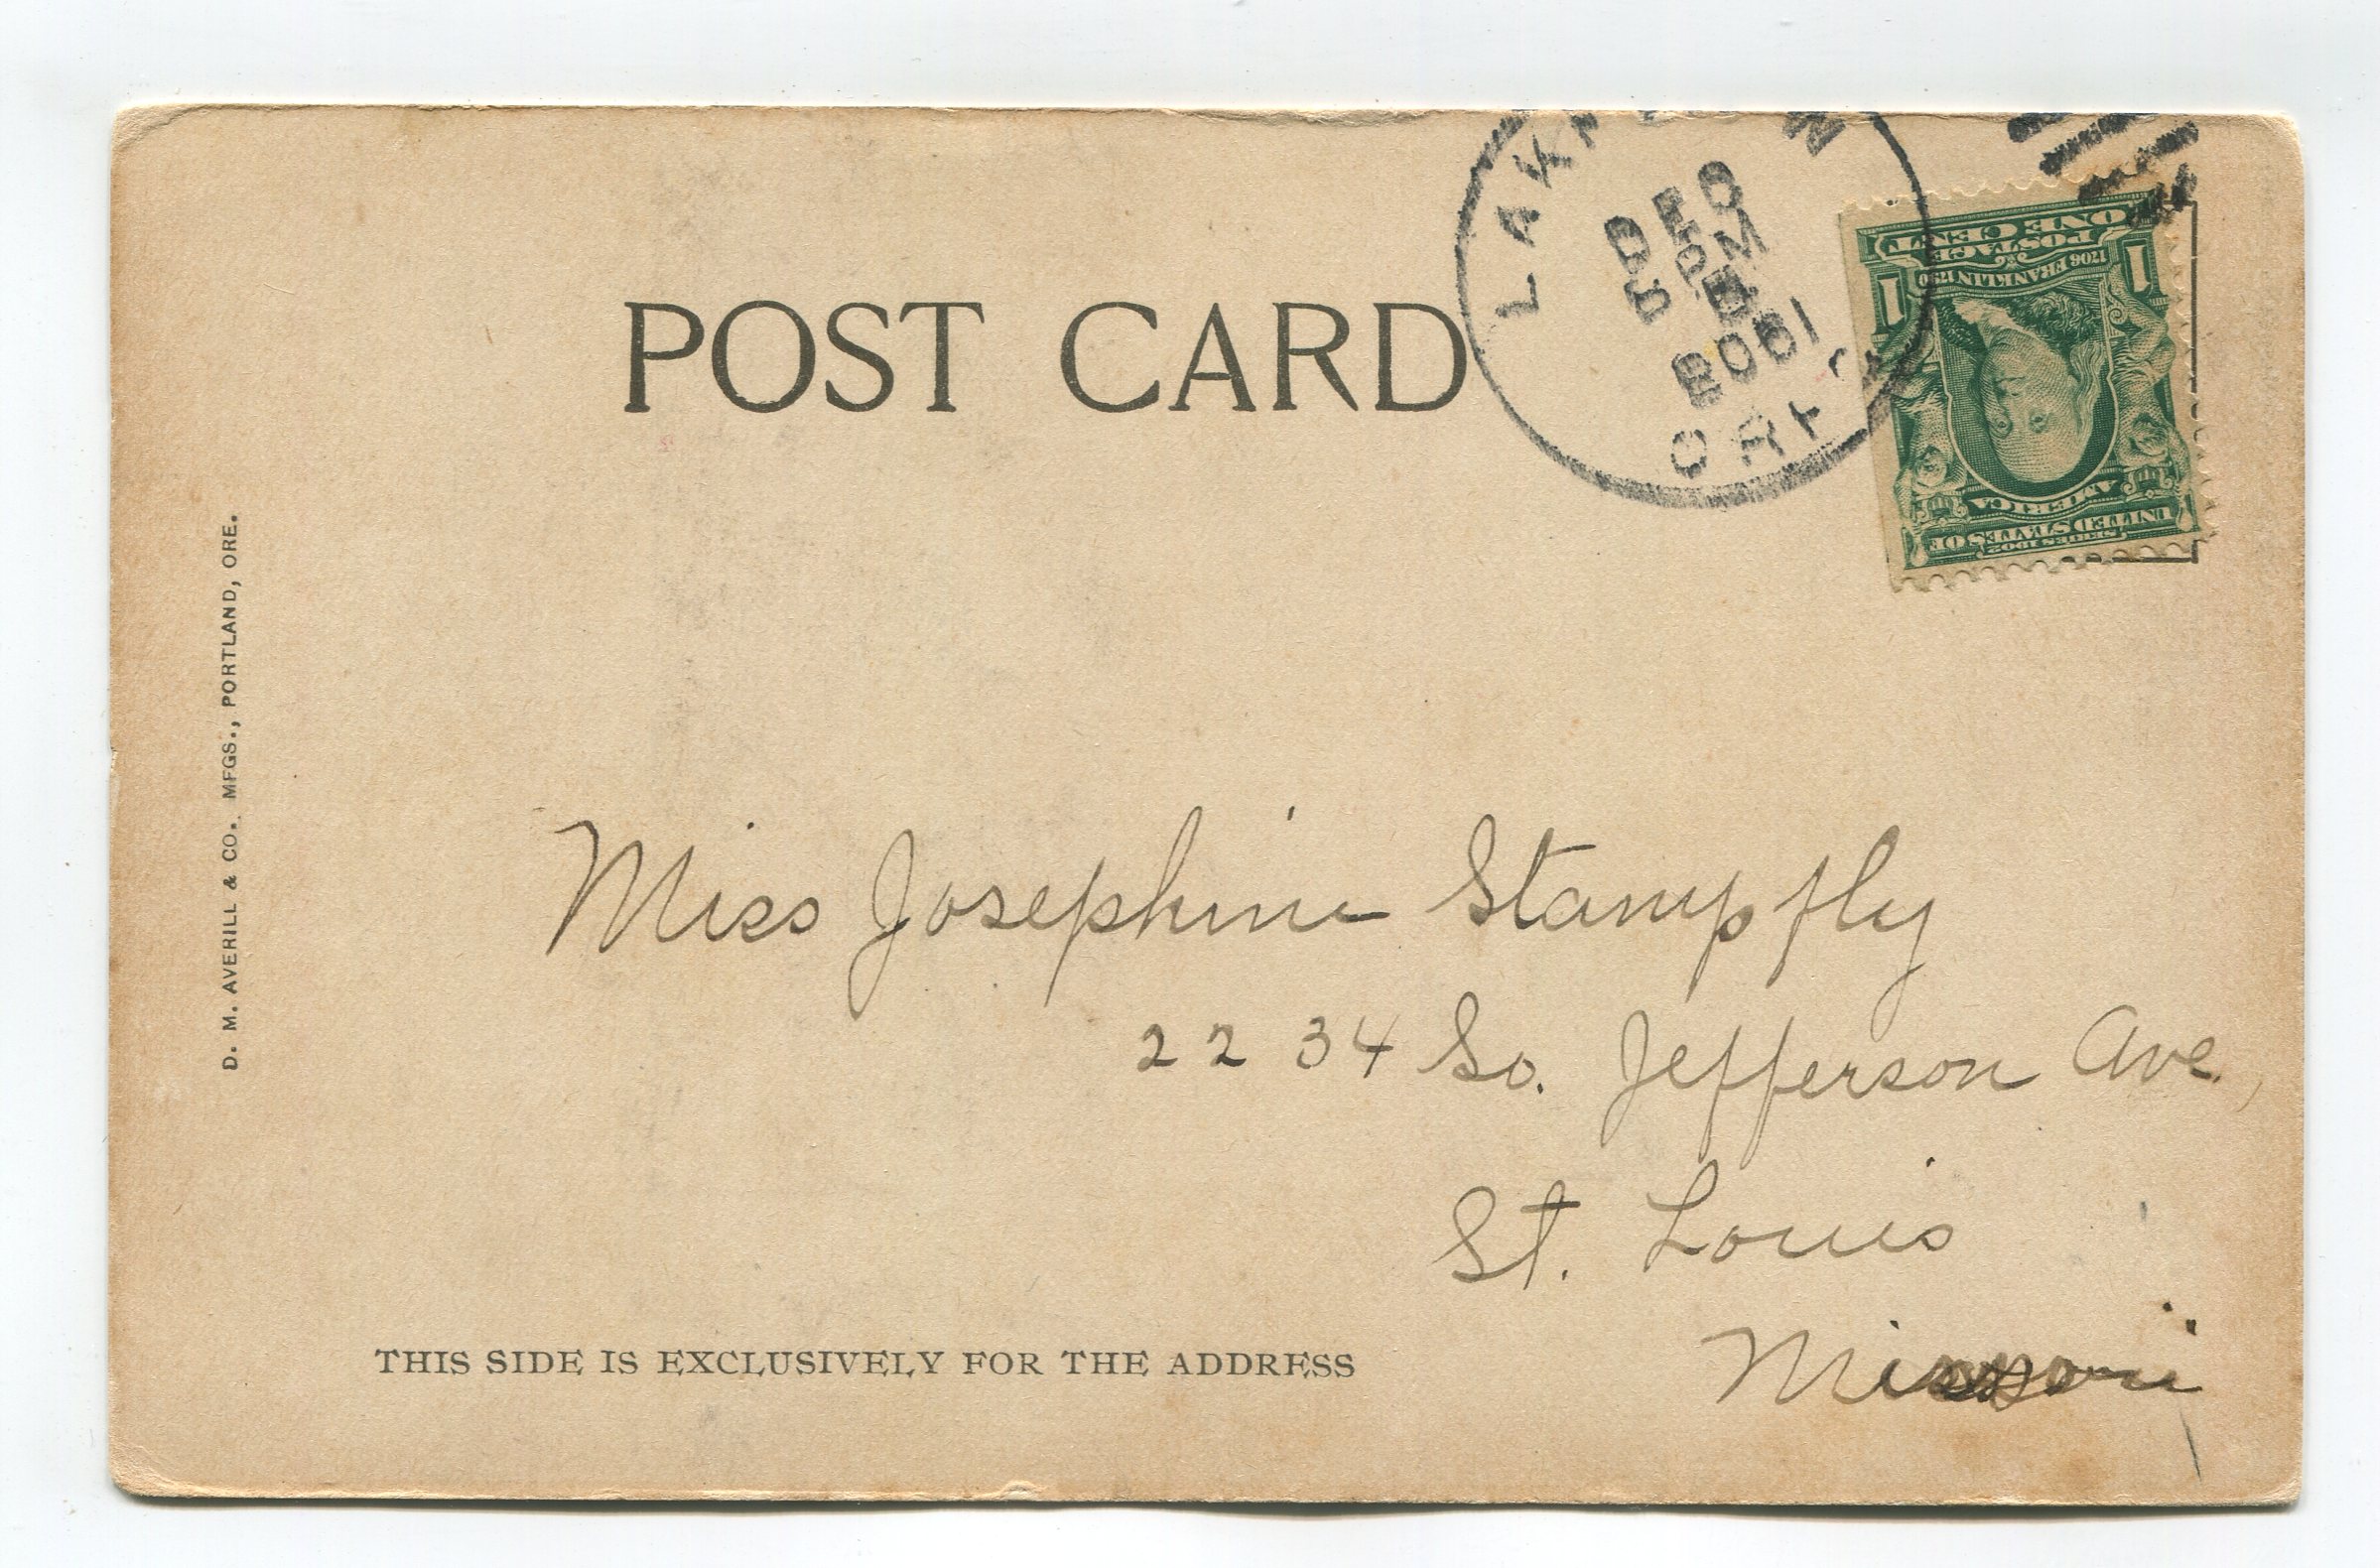 POST CARD
DEC
PM
ORE
ONE CENT
POSTAGE
1706 FRANKLIN 1790
1 1
AMERICA
UNITED STATES OF
SERIES 1902
D. M. AVERILL & CO. MFGS., PORTLAND, ORE.
Miss Josephine Stampfly
2234 So. Jefferson Ave.,
St. Louis
Missouri
THIS SIDE IS EXCLUSIVELY FOR THE ADDRESS